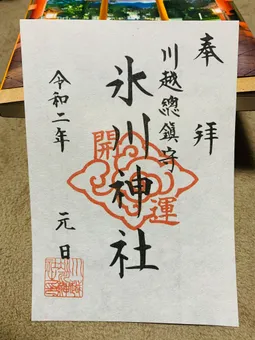 奉拝
川越總鎮守
氷川神社
開運
令和二年
元日